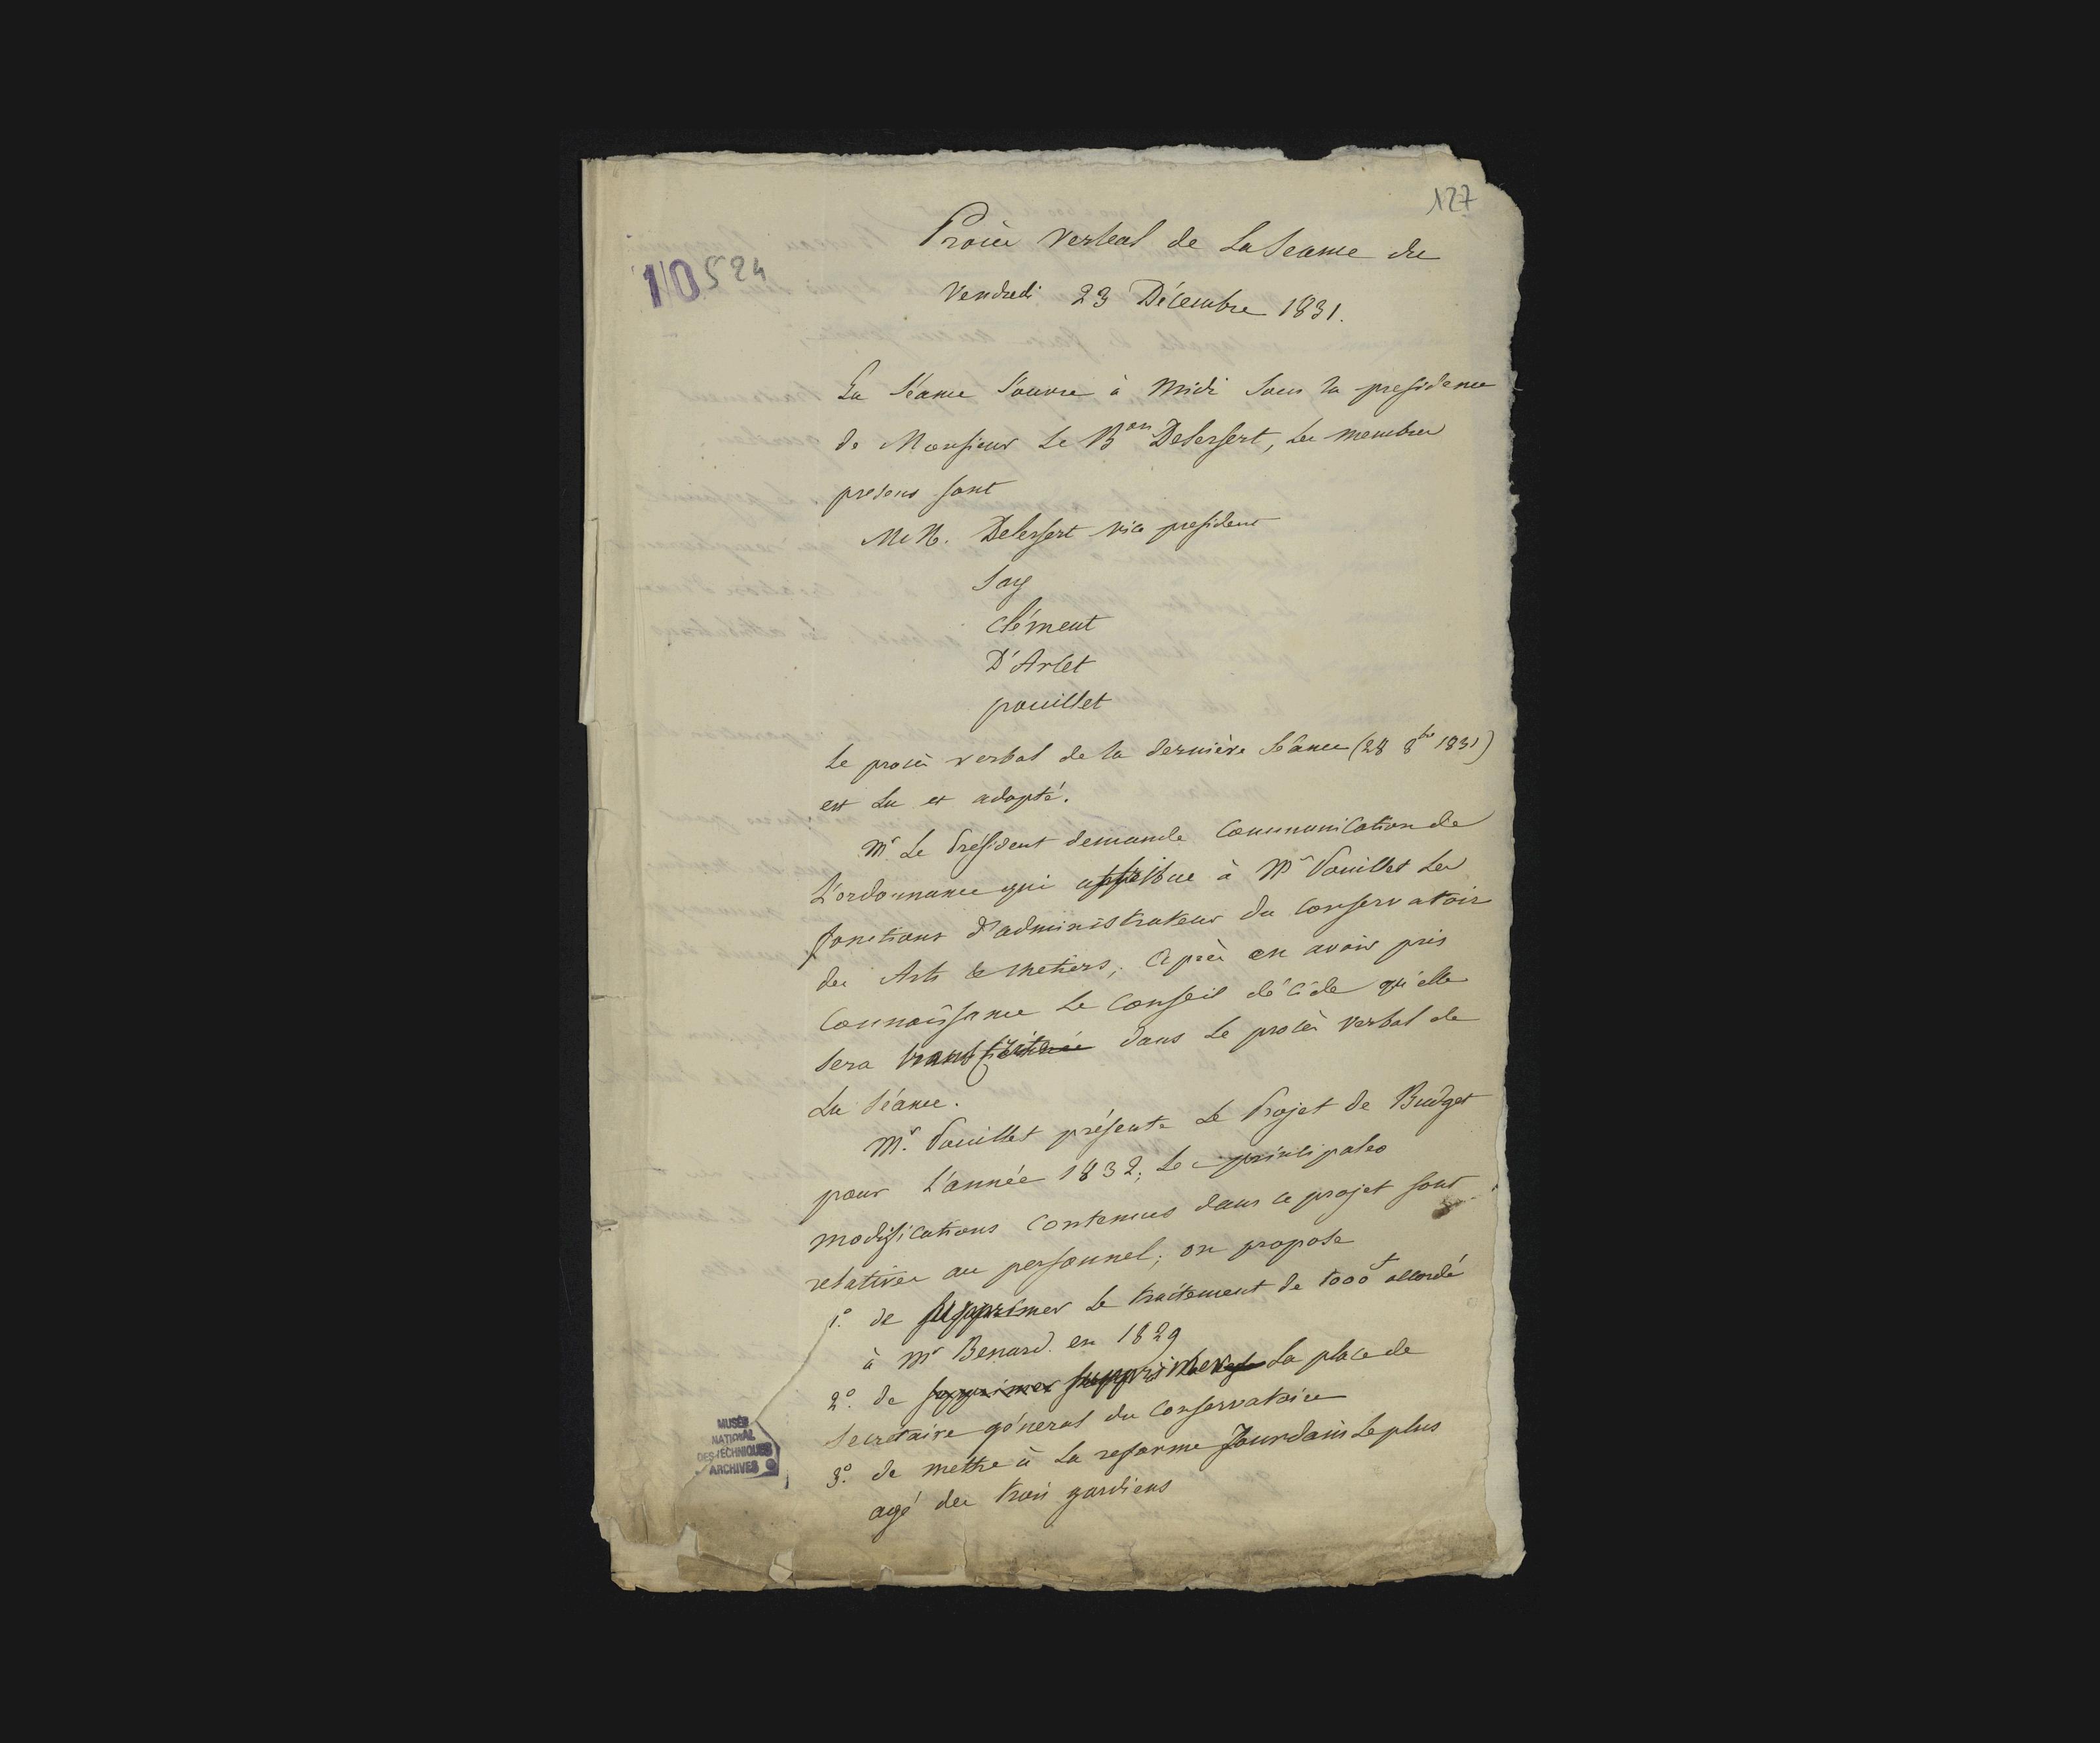 127
10 524
Procès verbal de La Seance du
Vendredi 23 Décembre 1831.
La Séance s'ouvre à Midi Sous la presidence
de Monsieur Le Bon Delessert, les membres
presens sont
MM. Delessert vice president
Say
Clément
D'Arcet
pouillet
Le procès verbal de la dernière Séance (28 8bre 1831)
est Lu et adopté.
Mr Le Président demande Communication de
L'ordonnance qui attribue à Mr Pouillet Les
fonctions d'administrateur du Conservatoire
des Arts & Metiers; Après en avoir pris
Connaissance Le Conseil décide qu'elle
sera transcrite dans Le procès verbal de
La Séance.
Mr. Pouillet présente Le Projet de Budget
pour L'année 1832; Les principales
modifications Contenues dans ce projet sont
relatives au personnel; on propose
1º. de supprimer Le traitement de 1000f accordé
à Mr Benard en 1829
2º. de supprimer supprimer La place de
Secretaire géneral du Conservatoire
3º. de mettre à La reforme Jourdain Le plus
agé des trois gardiens
MUSÉE
NATIONAL
DES TECHNIQUES
ARCHIVES